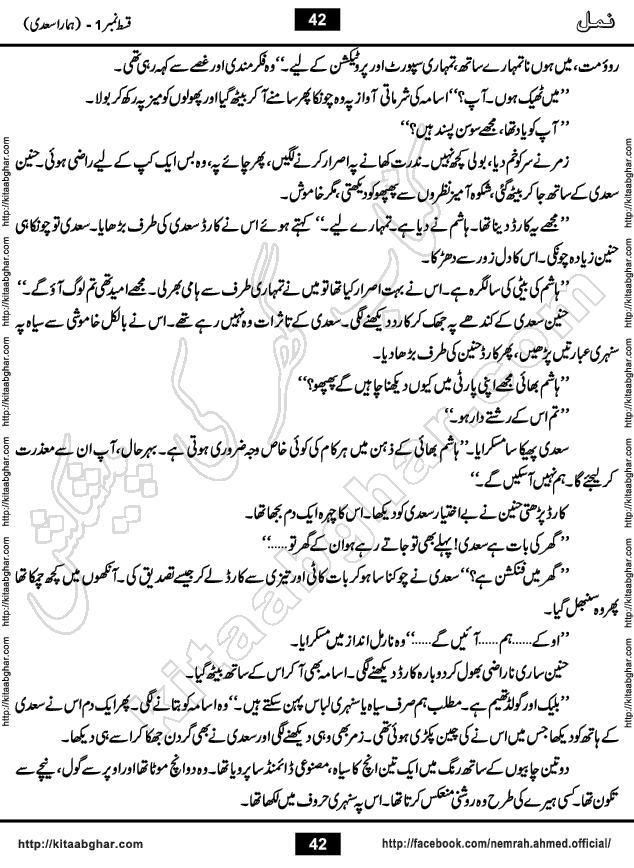 نمل
42
قسط نمبر 1 - (ہمارا سعدی)
روؤ مت، میں ہوں نا تمہارے ساتھ، تمہاری سپورٹ اور پروٹیکشن کے لیے۔‘‘ وہ فکرمندی اور غصے سے کہہ رہی تھی۔
’’میں ٹھیک ہوں۔ آپ؟‘‘ اسامہ کی شرماتی آواز پہ وہ چونکا پھر سامنے آ کر بیٹھ گیا اور پھولوں کو میز پہ رکھ کر بولا۔
’’آپ کو یاد تھا، مجھے سوسن پسند ہیں؟‘‘
زمر نے سر کو خم دیا، بولی کچھ نہیں۔ ندرت کھانے پہ اصرار کرنے لگیں، پھر چائے پہ، وہ بس ایک کپ کے لیے راضی ہوئی۔ حنین
سعدی کے ساتھ جا کر بیٹھ گئی، شکوہ آمیز نظروں سے پھپھو کو دیکھتی، مگر خاموش۔
’’مجھے یہ کارڈ دینا تھا۔ ہاشم نے دیا ہے۔ تمہارے لیے۔‘‘ کہتے ہوئے اس نے کارڈ سعدی کی طرف بڑھایا۔ سعدی تو چونکا ہی
حنین زیادہ چونکی۔ اس کا دل زور سے دھڑکا۔
’’ہاشم کی بیٹی کی سالگرہ ہے۔ اس نے بہت اصرار کیا تھا تو میں نے تمہاری طرف سے ہامی بھر لی۔ مجھے امید تھی تم لوگ آؤ گے۔‘‘
حنین سعدی کے کندھے پہ جھک کر کارڈ دیکھنے لگی۔ سعدی کے تاثرات وہ نہیں رہے تھے۔ اس نے بالکل خاموشی سے سیاہ پہ
سنہری عبارتیں پڑھیں، پھر کارڈ حنین کی طرف بڑھا دیا۔
’’ہاشم بھائی مجھے اپنی پارٹی میں کیوں دیکھنا چاہیں گے پھپھو؟‘‘
’’تم اس کے رشتے دار ہو۔‘‘
سعدی پھیکا سا مسکرایا۔ ’’ہاشم بھائی کے ذہن میں ہر کام کی کوئی خاص وجہ ضروری ہوتی ہے۔ بہرحال، آپ ان سے معذرت
کر لیجئے گا۔ ہم نہیں آ سکیں گے۔‘‘
کارڈ پڑھتی حنین نے بے اختیار سعدی کو دیکھا۔ اس کا چہرہ ایک دم بجھا تھا۔
’’گھر کی بات ہے سعدی! پہلے بھی تو جاتے رہے ہو ان کے گھر تو......‘‘
’’گھر میں فنکشن ہے؟‘‘ سعدی نے چوکنا سا ہو کر بات کاٹی اور تیزی سے کارڈ لے کر جیسے تصدیق کی۔ آنکھوں میں کچھ چمکا تھا
پھر وہ سنبھل گیا۔
’’اوکے......ہم......آئیں گے......‘‘ وہ نارمل انداز میں مسکرایا۔
حنین ساری ناراضی بھول کر دوبارہ کارڈ دیکھنے لگی۔ اسامہ بھی آ کر اس کے ساتھ بیٹھ گیا۔
’’بلیک اور گولڈ تھیم ہے۔ مطلب ہم صرف سیاہ یا سنہری لباس پہن سکتے ہیں۔‘‘ وہ اسامہ کو بتانے لگی۔ پھر ایک دم اس نے سعدی
کے ہاتھ کو دیکھا جس میں اس نے کی چین پکڑی ہوئی تھی۔ زمر بھی وہی دیکھنے لگی اور سعدی نے بھی گردن جھکا کر اسے ہی دیکھا۔
دو تین چابیوں کے ساتھ رنگ میں ایک تین انچ کا سیاہ، مصنوعی ڈائمنڈ سا پرویا تھا۔ وہ دو انچ موٹا تھا اور اوپر سے گول، نیچے سے
تکون تھا۔ کسی ہیرے کی طرح وہ روشنی منعکس کرتا تھا۔ اس پہ سنہری حروف میں لکھا تھا۔
http://kitaabghar.com
http://kitaabghar.com
http://kitaabghar.com
http://kitaabghar.com
http://kitaabghar.com
http://kitaabghar.com
http://kitaabghar.com
http://kitaabghar.com
http://kitaabghar.com
http://kitaabghar.com
http://kitaabghar.com
http://kitaabghar.com
کتاب گھر کی پیشکش
kitaabghar.com
http://kitaabghar.com
42
http://facebook.com/nemrah.ahmed.official/